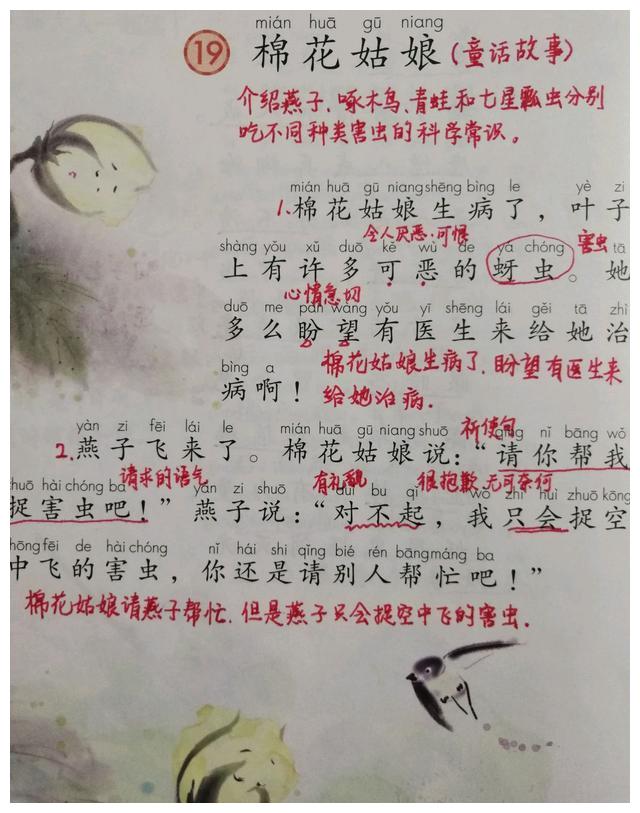 mián huā gū niang
19 棉花姑娘（童话故事）
介绍燕子、啄木鸟、青蛙和七星瓢虫分别
吃不同种类害虫的科学常识。
mián huā gū niang shēng bìng le yè zi
1.棉花姑娘生病了，叶子
令人厌恶·可恨
害虫
shàng yǒu xǔ duō kě wù de yá chóng tā
上有许多可恶的蚜虫。她
心情急切
duō me pàn wàng yǒu yī shēng lái gěi tā zhì
多么盼望有医生来给她治
bìng a
病啊！
棉花姑娘生病了，盼望有医生来
给她治病.
yàn zi fēi lái le mián huā gū niang shuō qǐng nǐ bāng wǒ
祈使句
2.燕子飞来了。棉花姑娘说：“请你帮我
请求的语气
有礼貌
很抱歉
无可奈何
zhuō hài chóng ba yàn zi shuō duì bu qǐ wǒ zhǐ huì zhuō kōng
捉害虫吧！”燕子说：“对不起，我只会捉空
zhōng fēi de hài chóng nǐ hái shi qǐng bié rén bāng máng ba
中飞的害虫，你还是请别人帮忙吧！”
棉花姑娘请燕子帮忙.但是燕子只会捉空中飞的害虫.